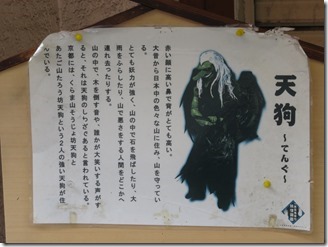 天狗
～てんぐ～
赤い顔に高い鼻で背がとても高い。
大昔から日本中の色々な山に住み、山を守ってい
る。
とても妖力が強く、山の中で石を飛ばしたり、大
雨をふらしたり、山で悪さをする人間をどこかへ
連れ去ったりする。
山の中で、木を倒す音や、誰かが大笑いする声がす
ると、それは天狗のしわざであると言われている。
京都には、くらま山そうじょぼ天狗と
あたご山たろう坊天狗という2人の強い天狗が住
んでいる。